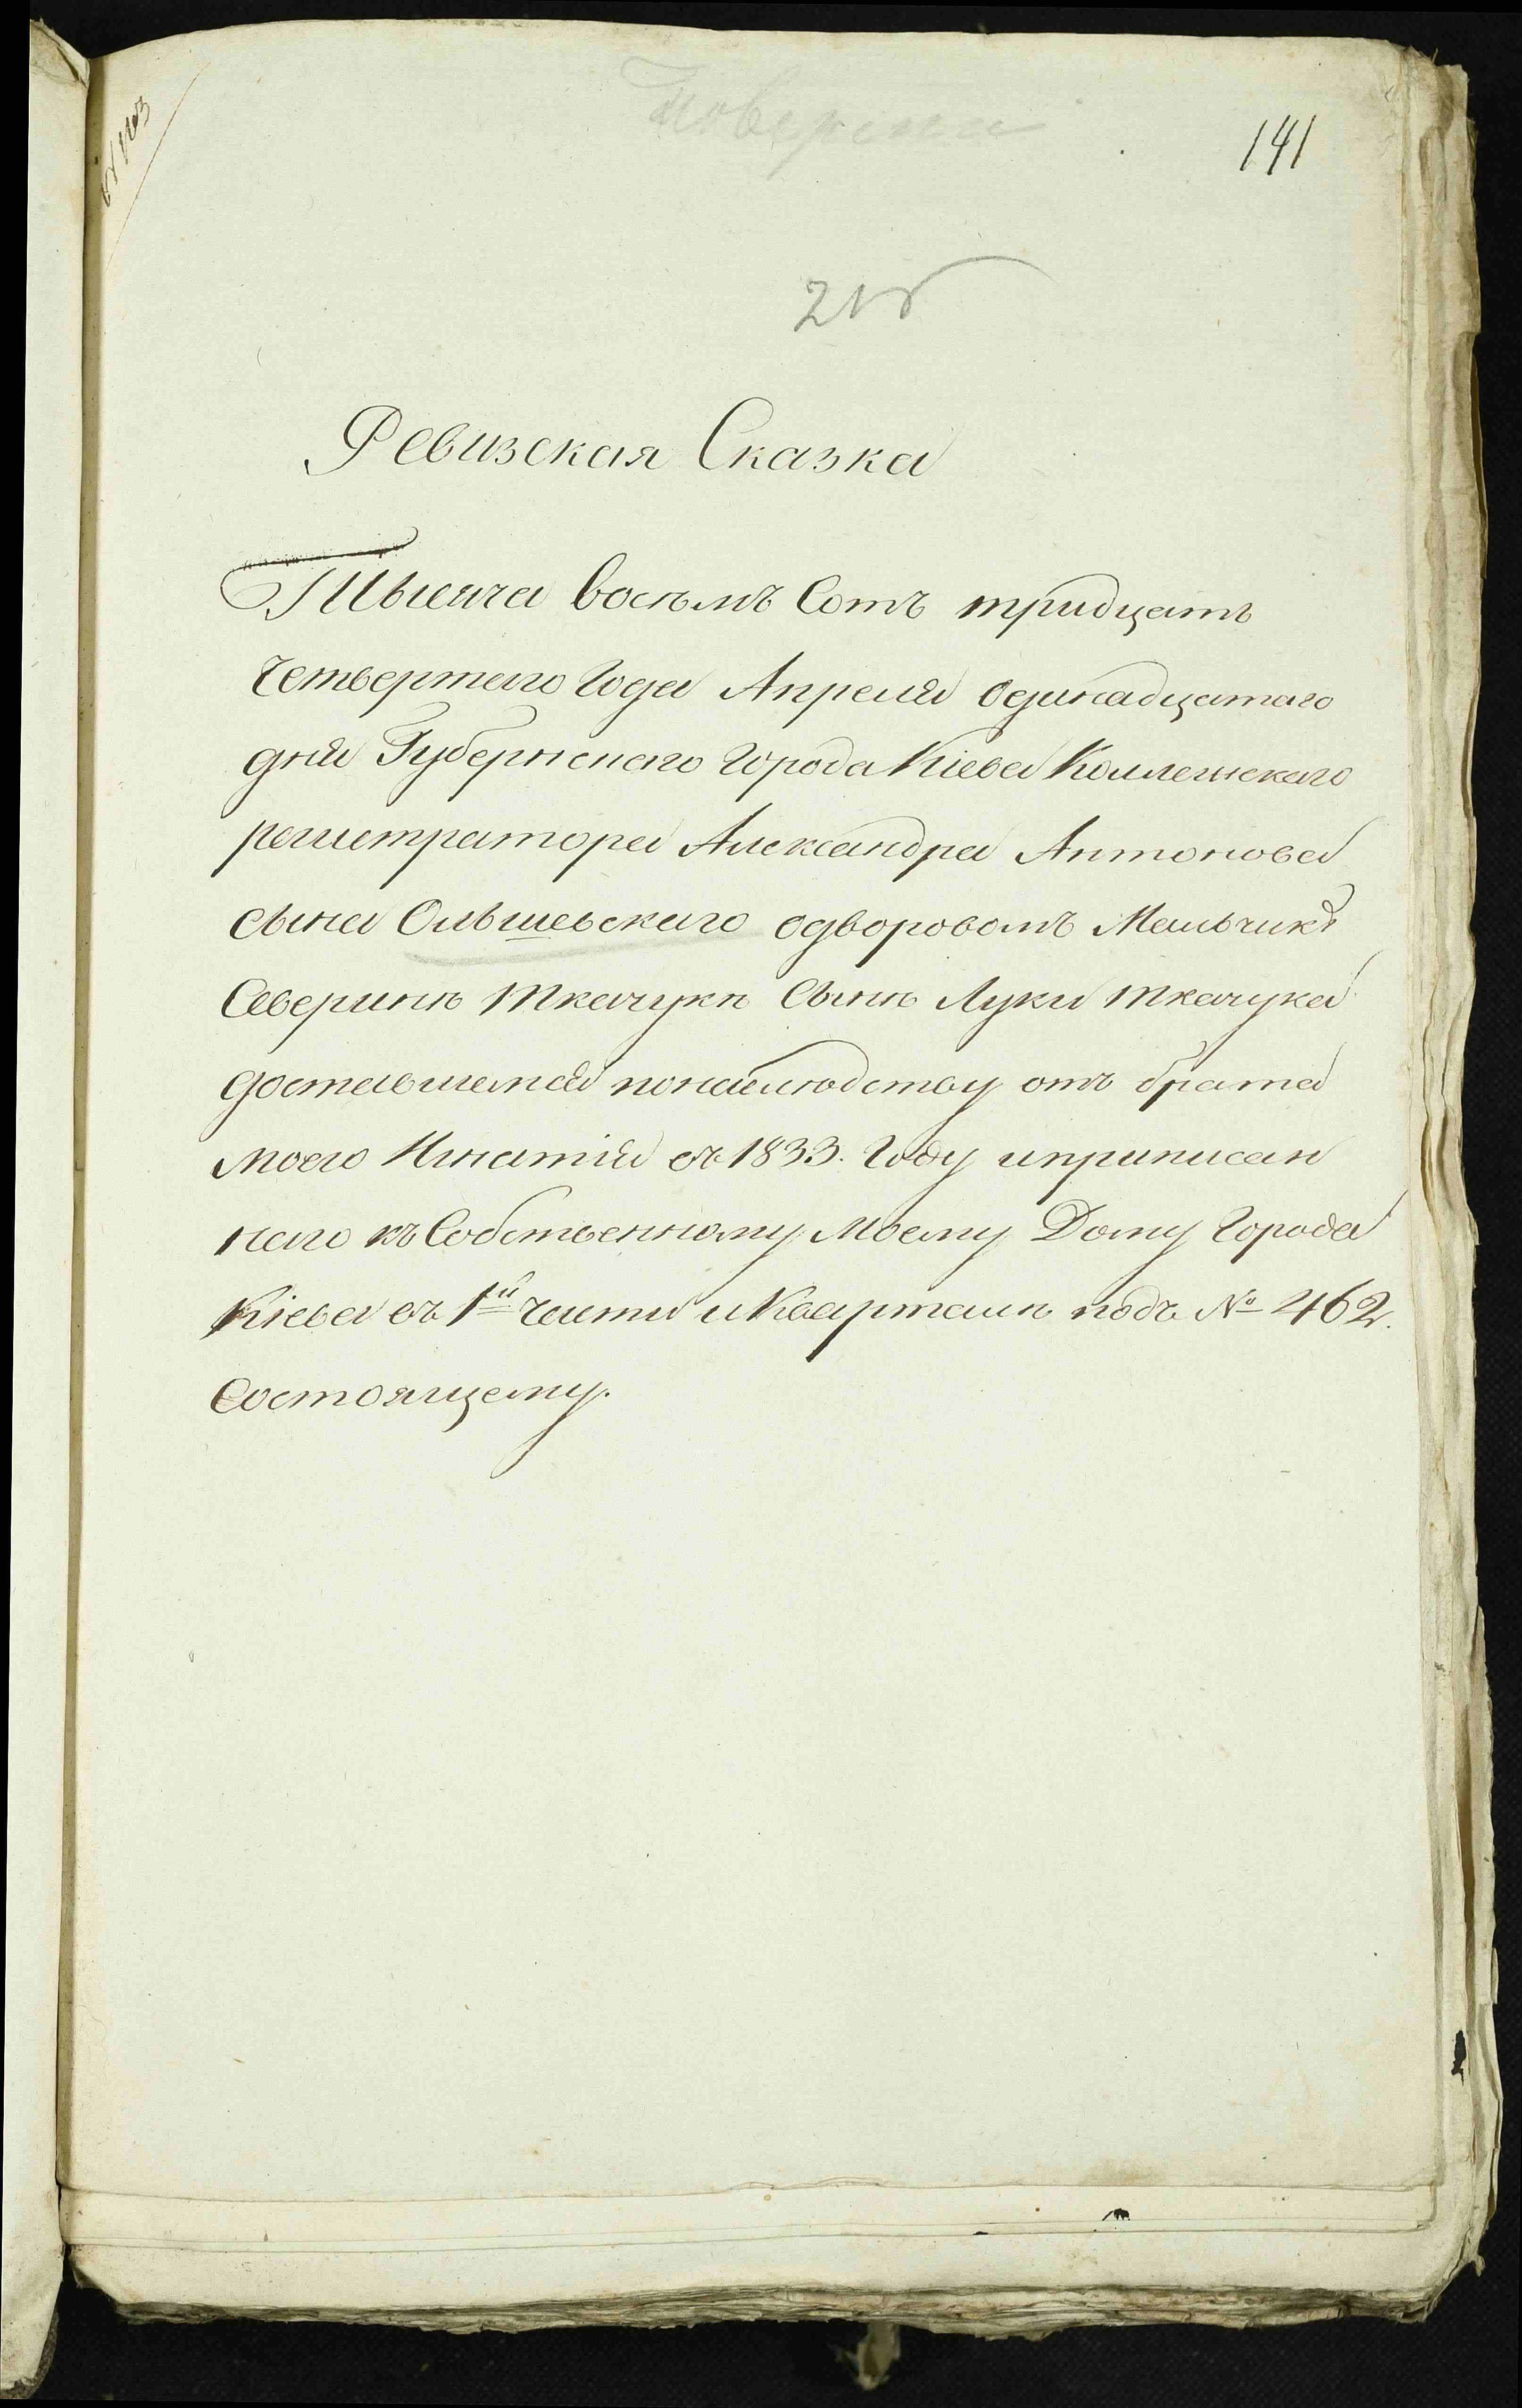 141
Ревизская Сказка
Тысяча восѣмъ Сотъ тридцать
Четвертаго Года Апреля одинадцатаго
дня Губернскаго Города Кіева Коллежскаго
регистратора Александра Антонова
сына Ольшевскаго одворовомъ Мальчикѣ
Северинѣ Ткачукѣ Сынѣ Луки Ткачука
доставшемся понаследству отъ брата
моего Игнатія въ 1833. Году иприписан
наго къ Собственному Моему Дому Города
Кіева въ 1й части и Кварталѣ подъ № 462.
Состоящему.